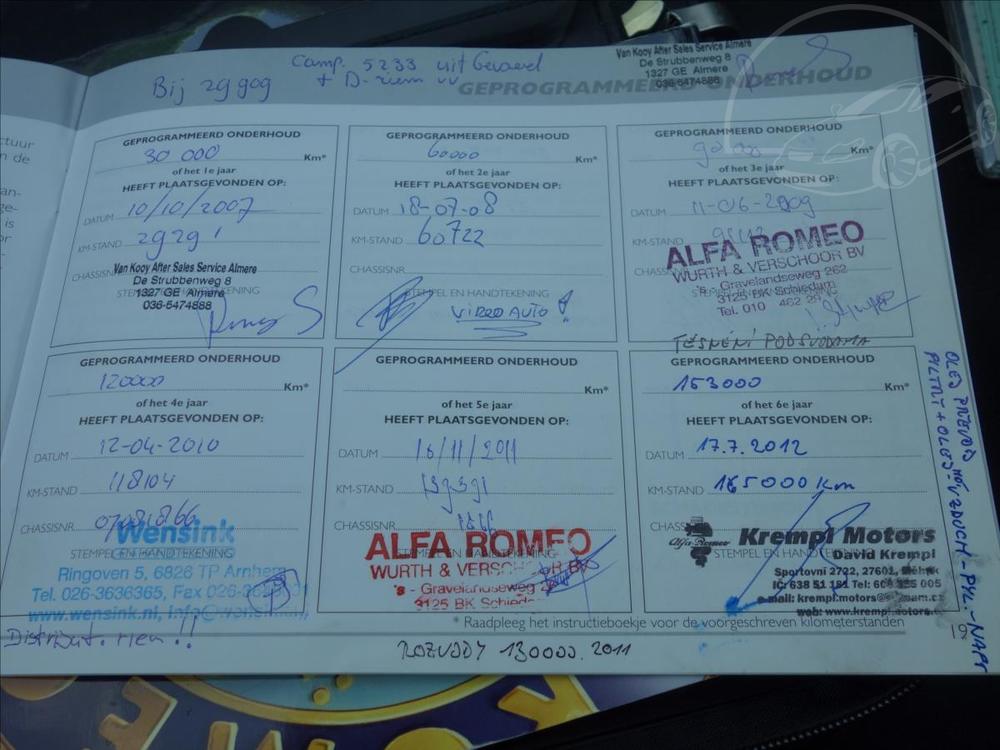 Camp. 5233 uitgevoerd
Bij 29909 + D-riem vv
Van Kooy After Sales Service Almere
De Strubbenweg 8
1327 GE Almere
036-5474888
GEPROGRAMMEERD ONDERHOUD
GEPROGRAMMEERD ONDERHOUD
30 000 Km*
of het 1e jaar
HEEFT PLAATSGEVONDEN OP:
DATUM 10/10/2007
KM-STAND 29291
CHASSISNR.
Van Kooy After Sales Service Almere
De Strubbenweg 8
1327 GE Almere
036-5474888
STEMPEL EN HANDTEKENING
GEPROGRAMMEERD ONDERHOUD
60000 Km*
of het 2e jaar
HEEFT PLAATSGEVONDEN OP:
DATUM 18-07-08
KM-STAND 60722
CHASSISNR.
STEMPEL EN HANDTEKENING
VIDEO AUTO!
GEPROGRAMMEERD ONDERHOUD
90000 Km*
of het 3e jaar
HEEFT PLAATSGEVONDEN OP:
DATUM 11-06-2009
KM-STAND
CHASSISNR.
ALFA ROMEO
WURTH & VERSCHOOR BV
's Gravelandseweg 262
3125 BK Schiedam
Tel. 010 462 29
STEMPEL
TĚSNĚNÍ POD SVODAMA
GEPROGRAMMEERD ONDERHOUD
120000 Km*
of het 4e jaar
HEEFT PLAATSGEVONDEN OP:
DATUM 12-04-2010
KM-STAND 118104
CHASSISNR.
Wensink
STEMPEL EN HANDTEKENING
Ringoven 5, 6826 TP Arnhem
Tel. 026-3636365, Fax 026-
www.wensink.nl,
GEPROGRAMMEERD ONDERHOUD
Km*
of het 5e jaar
HEEFT PLAATSGEVONDEN OP:
DATUM 16/11/2011
KM-STAND
CHASSISNR. 1866
ALFA ROMEO
STEMPEL EN HANDTEKENING
WURTH & VERSCHOOR BV
's - Gravelandseweg
3125 BK Schiedam
GEPROGRAMMEERD ONDERHOUD
153000 Km*
of het 6e jaar
HEEFT PLAATSGEVONDEN OP:
DATUM 17.7.2012
KM-STAND 165000 km
CHASSISNR.
Alfa-Romeo
Krempl Motors
STEMPEL EN HANDTEKENING
David Krempl
Sportovní 2722, 27601,
IČ: 638 51 181 Tel:
e-mail: krempl.motors@
web: www.krempl.motors.
* Raadpleeg het instructieboekje voor de voorgeschreven kilometerstanden
19
Distribut. riem!!
ROZVODY 130000. 2011
OLEJ PŘEVOD
FILTRY + OLEJ MOT. VZDUCH - PYL. - NAFT